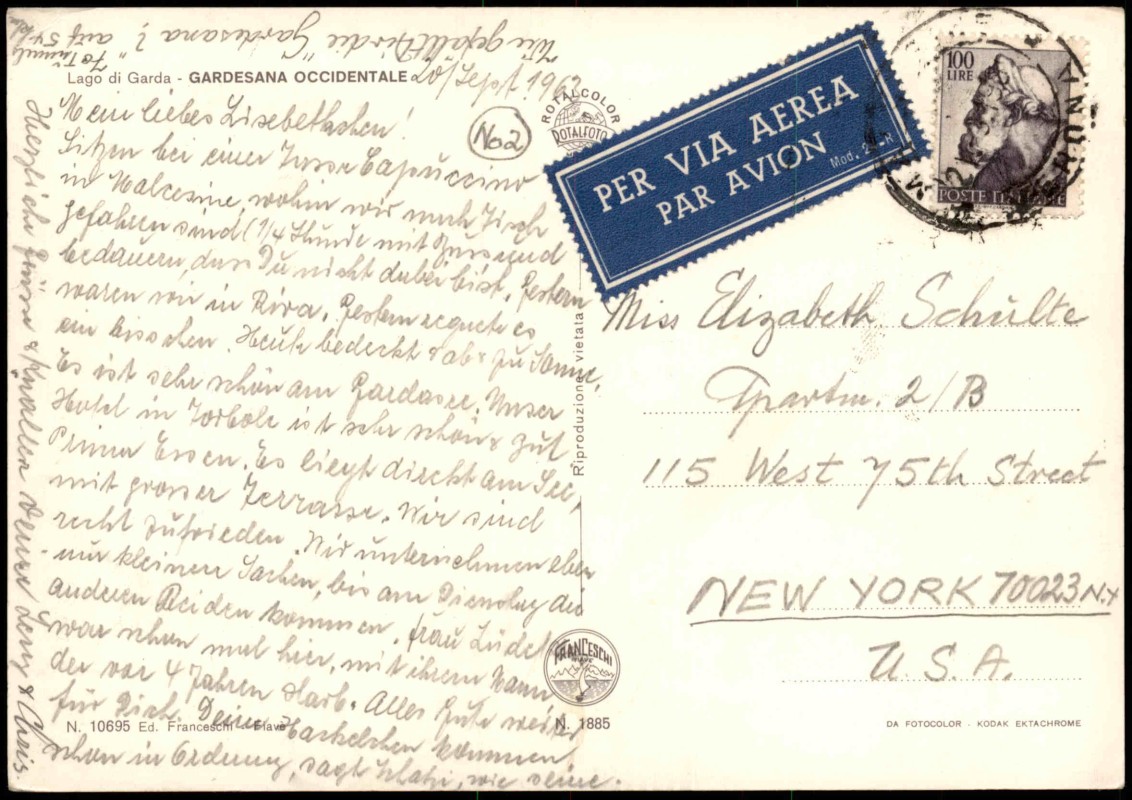 Wie gefällt Dir die "Gardesana"?
auf
Lago di Garda - GARDESANA OCCIDENTALE
20/Sept. 196
No 2
Mein liebes Lisebethchen!
Sitzen bei einer Tasse Capuccino
in Malcesine, wohin wir nach Tisch
gefahren sind (1/4 Stunde mit und
bedauern, dass Du nicht dabei bist. Gestern
waren wir in Riva. Gestern regnete es
ein bisschen. Heute bedeckt & ab & zu Sonne.
Es ist sehr schön am Gardasee. Unser
Hotel in Torbole ist sehr schön & gut.
Prima Essen. Es liegt direkt am See,
mit grosser Terrasse. Wir sind
recht zufrieden. Wir unternehmen eben
nur kleinen Sachen, bis am Dienstag die
anderen Beiden kommen. Frau
war schon mal hier, mit ihrem Mann
der vor 4 Jahren starb. Alles Gute weiter
für Dich. Deine kommen
schon in Ordnung, sagt, wie seine.
Herzliche Grüsse & Deiner & Chris.
N. 10695 Ed. Franceschi - Fiavè
N. 1885
ROTALCOLOR
ROTALFOTO
Riproduzione vietata
FRANCESCHI
PER VIA AEREA
PAR AVION
Mod. 24-R
100
LIRE
POSTE ITALIANE
Miss Elizabeth Schulte
Apartm. 2/B
115 West 75th Street
NEW YORK 10023 N.Y
U.S.A.
DA FOTOCOLOR - KODAK EKTACHROME